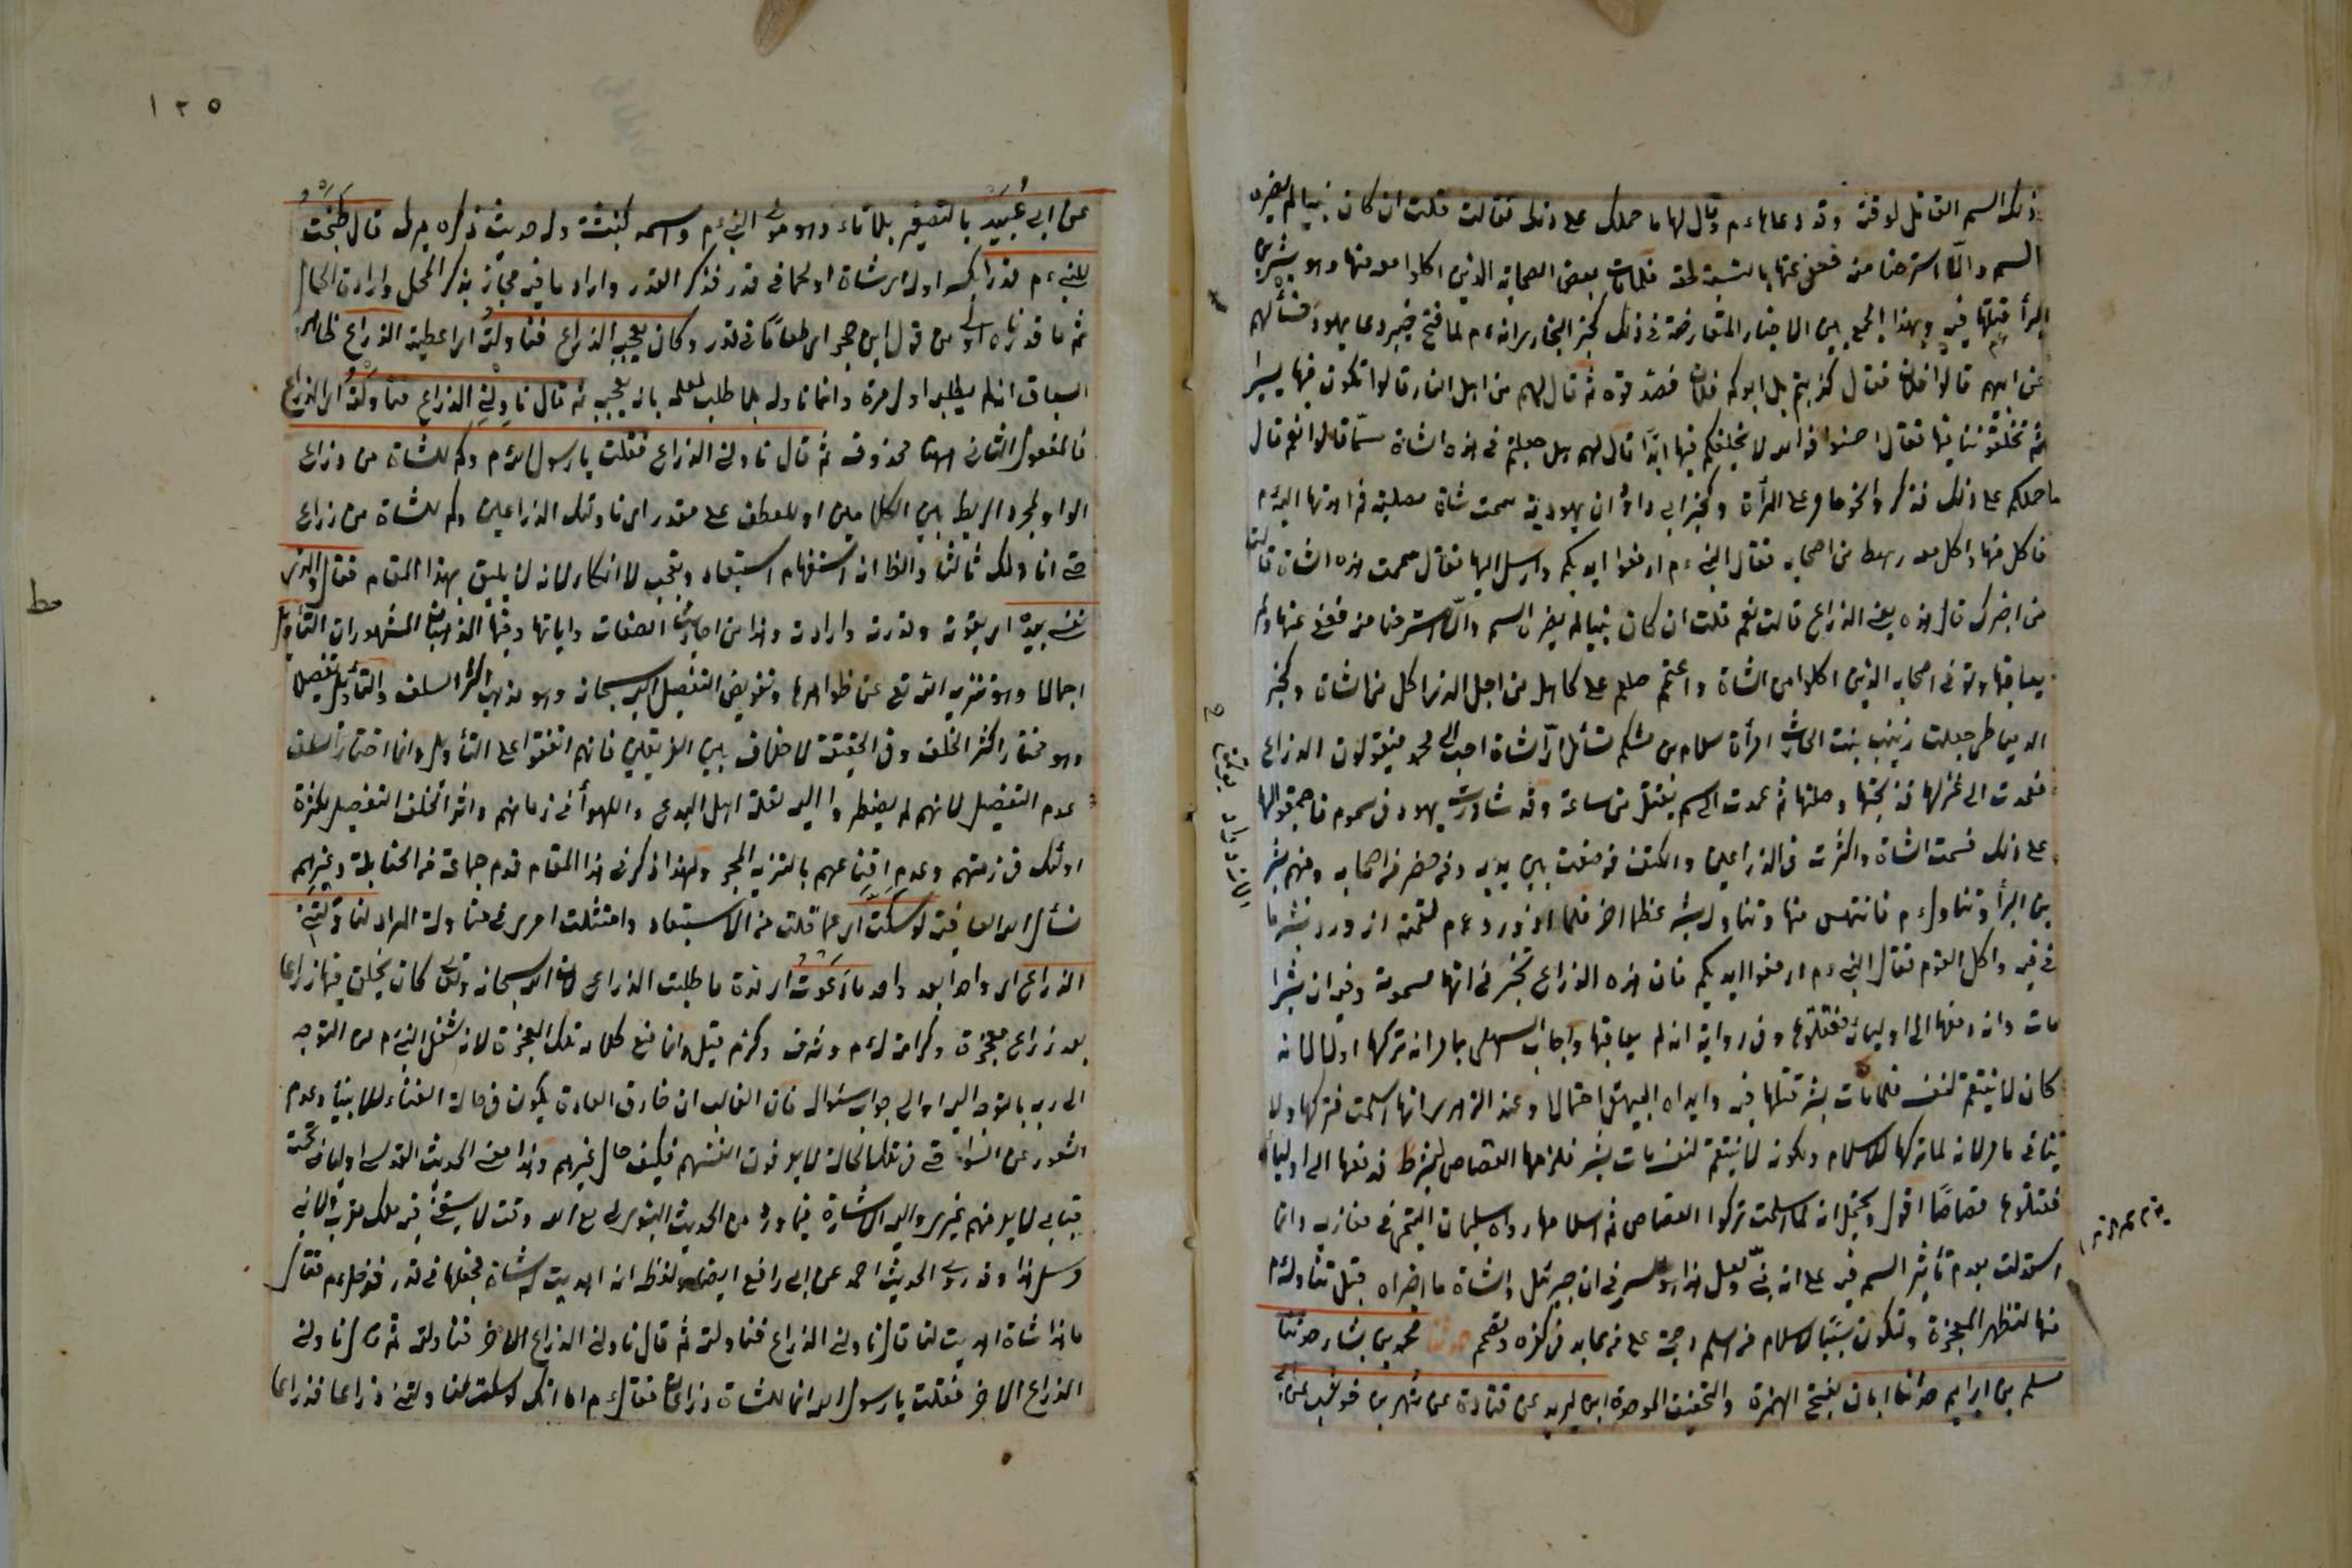 ذلك السم القاتل لوقته وقد دعاهاءم وقال لها ما حملك على ذلك فقالت قلت ان كان نبيا لم يضره
السم والا استرحنا منه فعفى عنها بالنسبة لحقه فلما مات بعض الصحابة الذين اكلوا معه منها وهو بشر بن
البرأ قتلها فيه وبهذا الجمع بين الاخبار المتعارضة في ذلك كخبر البخاري انه ءم لما فتح خيبر دعا يهود فسألهم
عن ابيهم قالوا فلان فقال كذبتم بل ابوكم فلان فصدقوه ثم قال لهم من اهل النار قالوا نكون فيها يسيرا
ثم تخلفوننا فيها فقال اخسئوا فوالله لا نخلفكم فيها ابدا قال لهم هل جعلتم في هذه الشاة سما قالوا نعم قال
ما حملكم على ذلك فذكروا نحو ما مر على المرأة وكخبر ابي داود ان يهودية سمت شاة مصلية ثم اهدتها اليه ءم
فاكل منها واكل معه رهط من اصحابه فقال النبي ءم ارفعوا ايديكم وارسل اليها فقال سممت هذه الشاة قالت
من اخبرك قال هذه يعني الذراع قالت نعم قلت ان كان نبيا لم يضره السم والا استرحنا منه فعفى عنها ولم
يعاقبها وتوفي اصحابه الذين اكلوا من الشاة واحتجم صلعم على كاهله من اجل الذي اكل من الشاة وكخبر
الدمياطي جعلت زينب بنت الحارث امرأة سلام بن مشكم تسأل اي الشاة احب الى محمد فيقولون الذراع
فعمدت الى عنز لها فذبحتها وصلتها ثم عمدت الى سم يقتل من ساعته وقد شاورت يهود في سموم فاجمعوا لها
على ذلك فسمت الشاة واكثرت في الذراعين والكتف فوضعت بين يديه ومن حضر من اصحابه ومنهم بشر
بن البرأ وتناول ءم فانتهس منها وتناول بشر عظما اخر فلما ازدرد ءم لقمته ازدرد بشر ما
في فيه واكل القوم فقال النبي ءم ارفعوا ايديكم فان هذه الذراع تخبرني انها مسمومة وفيه ان بشرا
مات وانه دفعها الى اوليائه فقتلوها وفي رواية انه لم يعاقبها واجاب السهيلي بما مر انه تركها اولا لانه
كان لا ينتقم لنفسه فلما مات بشر قتلها فيه وابداه البيهقي احتمالا وعند الزهري انها اسلمت فتركها ولا
ينافي ما مر لانه لما تركها للاسلام ولكونه لا ينتقم لنفسه مات بشر فلزمها القصاص بشرطه فدفعها الى اوليائه
فقتلوها قصاصا اقول ويحتمل انه لما اسلمت تركوا القصاص ثم اسلامها رواه سليمان التيمي في مغازيه وانها
استدلت بعدم تأثير السم فيه على انه نبي ولعل هذا هو السر في ان جبرئيل والشاة ما اخبراه قبل تناوله ءم
منها لتظهر المعجزة وتكون سببا لاسلام من اسلم وحجة على من عاند في كفره وصمم حدثنا محمد بن بشار حدثنا
مسلم بن ابراهيم حدثنا ابان بفتح الهمزة والتخفيف الموحدة ابن يزيد عن قتادة عن شهر بن حوشب عن ابي
١٢٥
عن ابي عُبَيد بالتصغير بلا تاء وهو مولى النبي ءم واسمه كنيته وله حديث ذكره ميرك قال طَبَختُ
للنبي ءم قدرا بكسر اوله اي شاة او لحما في قدر فذكر القدر واراد ما فيه مجاز بذكر المحل وارادة الحال
ثم ما قدرناه اولى من قول ابن حجر اي طعاما في قدر وكان يعجبه الذراع فناولته اي اعطيته الذراع ظاهر
السياق انه لم يطلبه اول مرة وانما ناوله بلا طلب لعلمه بانه يعجبه ثم قال ناولني الذراع فناولته اي الذراع
فالمفعول الثاني ههنا محذوف ثم قال ناولني الذراع فقلت يا رسول الله ءم وكم للشاة من ذراع
الواو لمجرد الربط بين الكلامين او للعطف على مقدر اي ناولتك الذراعين وكم للشاة من ذراع
حتى اناولك ثالثا والظ انه استفهام استبعاد وتعجب لا انكار لانه لا يليق بهذا المقام فقال والذي
نفسي بيده اي بقوته وقدرته وارادته وهذا من احاديث الصفات واياتها وفيها المذهبان المشهوران التأويل
اجمالا وهو تنزيه الله تع عن ظواهرها وتفويض التفصيل اليه سبحانه وهو مذهب اكثر السلف والتأويل تفصيلا
وهو مختار اكثر الخلف وفي الحقيقة لا خلاف بين الفريقين فانهم اتفقوا على التأويل وانما اختار السلف
عدم التفصيل لانهم لم يضطروا اليه لقلة اهل البدع والاهوأ في زمانهم واثر الخلف التفصيل لكثرة
اولئك في زمنهم وعدم اقناعهم بالتنزيه المجرد ولهذا ذكر في هذا المقام قدم جماعة من الحنابلة وغيرهم
نسأل الله العافية لو سكتَّ اي عما قلت من الاستبعاد وامتثلت امري في مناولة المراد لناولتني
الذراع اي واحدا بعد واحد ما دعوت اي مدة ما طلبت الذراع لان الله سبحانه وتعالى كان يخلق فيها ذراعا
بعد ذراع معجزة وكرامة له ءم وشرف وكرم قيل وانما منع كلامه تلك المعجزة لانه شغل النبي ءم عن التوجه
الى ربه بالتوجه اليه او الى جواب سئواله فان الغالب ان خارق العادة يكون في حالة الفناء للانبياء وعدم
الشعور عن السوا حتى في تلك الحالة لا يعرفون انفسهم فكيف حال غيرهم وهذا معنى الحديث القدسي اوليائي تحت
قبابي لا يعرفهم غيري واليه الاشارة فيما ورد من الحديث النبوي لي مع الله وقت لا يسعني فيه ملك مقرب ولا نبي
مرسل هذا وقد روى الحديث احمد عن ابي رافع ايضا ولفظه انه اهديت له شاة فجعلها في قدر فدخل ءم فقال
ما هذا قال شاة اهديت لنا قال ناولني الذراع فناولته ثم قال ناولني الذراع الاخر فناولته ثم قال ناولني
الذراع الاخر فقلت يا رسول الله انما للشاة ذراعان فقال ءم اما انك لو سكت لناولتني ذراعا فذراعا